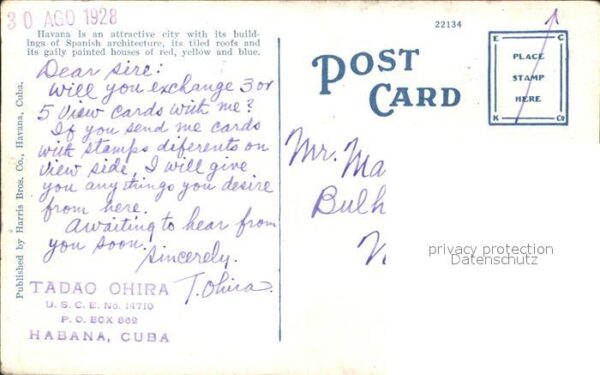 30 AGO 1928
Havana is an attractive city with its build-
ings of Spanish architecture, its tiled roofs and
its gaily painted houses of red, yellow and blue.
Dear sire:
Will you exchange 3 or
5 view cards with me?
If you send me cards
with stamps diferents on
view side, I will give
you any things you desire
from here.
Awaiting to hear from
you soon.
Sincerely.
T. Ohira
TADAO OHIRA
U.S.C.E. No. 14710
P.O. BOX 862
HABANA, CUBA
Published by Harris Bros. Co., Havana, Cuba.
22134
POST
CARD
PLACE
STAMP
HERE
E C
K Co
Mr. Ma
Bulh
privacy protection
Datenschutz